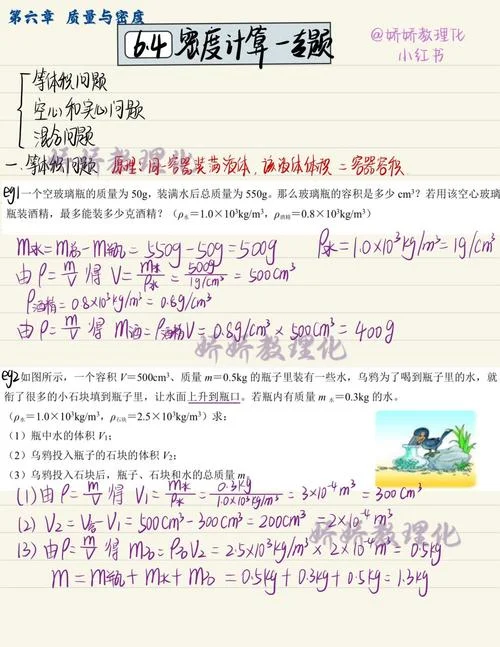 第六章 质量与密度
6.4 密度计算—专题
@娇娇教理化
小红书
等体积问题
空心和实心问题
混合问题
娇娇教理化
一.等体积问题 原理:同一容器装满液体,该液体体积=容器容积
eg1 一个空玻璃瓶的质量为 50g,装满水后总质量为 550g。那么玻璃瓶的容积是多少 cm³?若用该空心玻璃
瓶装酒精,最多能装多少克酒精?(ρ水=1.0×10³kg/m³,ρ酒精=0.8×10³kg/m³)
m水=m总-m瓶=550g-50g=500g ρ水=1.0×10³kg/m³=1g/cm³
由ρ=m/V 得 V=m水/ρ水=500g/1g/cm³=500cm³
ρ酒精=0.8×10³kg/m³=0.8g/cm³
由ρ=m/V 得 m酒=ρ酒精V=0.8g/cm³×500cm³=400g
娇娇教理化
eg2 如图所示,一个容积 V=500cm³、质量 m=0.5kg 的瓶子里装有一些水,乌鸦为了喝到瓶子里的水,就
衔了很多的小石块填到瓶子里,让水面上升到瓶口。若瓶内有质量 m水=0.3kg 的水。
(ρ水=1.0×10³kg/m³,ρ石块=2.5×10³kg/m³)求:
(1)瓶中水的体积 V₁;
(2)乌鸦投入瓶子的石块的体积 V₂;
(3)乌鸦投入石块后,瓶子、石块和水的总质量 m。
(1)由ρ=m/V 得 V₁=m水/ρ水=0.3kg/1.0×10³kg/m³=3×10⁻⁴m³=300cm³
(2) V₂=V容-V₁=500cm³-300cm³=200cm³=2×10⁻⁴m³
娇娇教理化
(3)由ρ=m/V 得 m石=ρ石V₂=2.5×10³kg/m³×2×10⁻⁴m³=0.5kg
m=m瓶+m水+m石=0.5kg+0.3kg+0.5kg=1.3kg